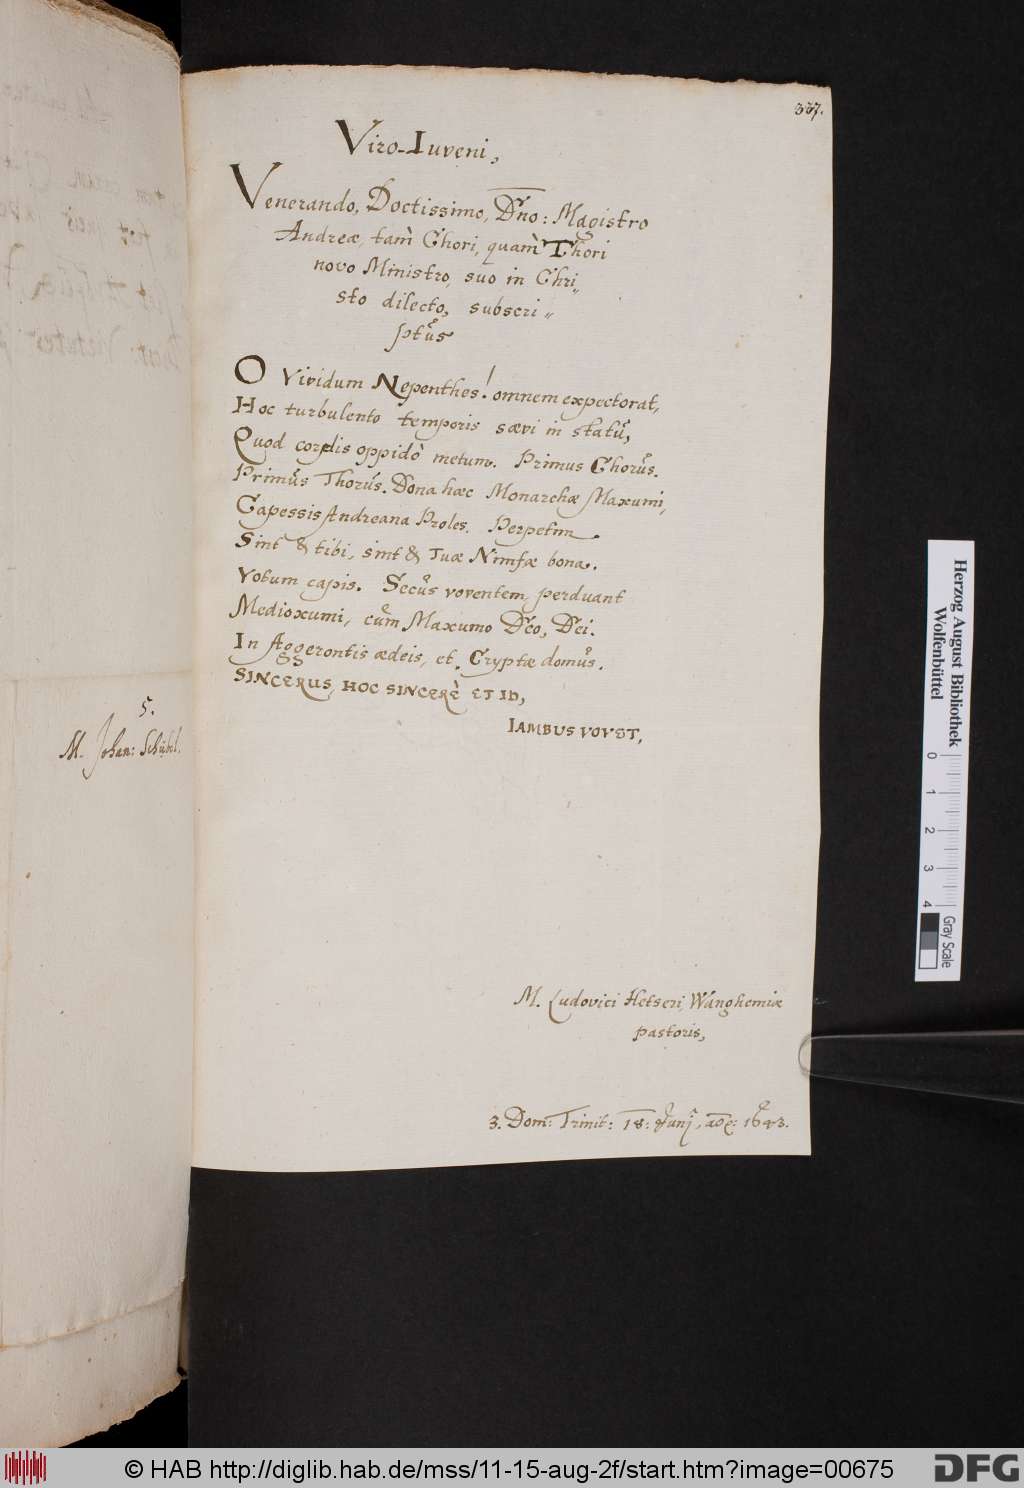 337.
Viro-Iuveni,
Venerando, Doctissimo, Dn̄o: Magistro
Andreæ, tam̀ Chori, quam̀ Thori
novo Ministro, suo in Chri„
sto dilecto, subscri„
ptus
O Vividum Nepenthes! omnem expectorat,
Hoc turbulento temporis sævi in statu,
Quod cordis oppidò metum. Primus Chorus.
Primus Thorus. Dona hæc Monarchæ Maxumi,
Capessis Andreana Proles. Perpetim
Sint & tibi, sint & Tuæ Nimfæ bona.
Votum capis. Secus voventem perduant
Medioxumi, cum Maxumo Deo, Dei.
In Aggerontis ædeis, et Cryptæ domus.
SINCERUS, HOC SINCERÈ ET ID,
IAMBUS VOVET,
5.
M. Johan: Schübel.
M. Ludovici Hetseri, Wanghemiæ
pastoris,
3. Dom: Trinit: 18: Junj, 1643.
Herzog August Bibliothek
Wolfenbüttel
0 1 2 3 4
Gray Scale
© HAB http://diglib.hab.de/mss/11-15-aug-2f/start.htm?image=00675
DFG